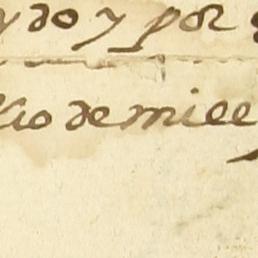 ydo y por
io de mill